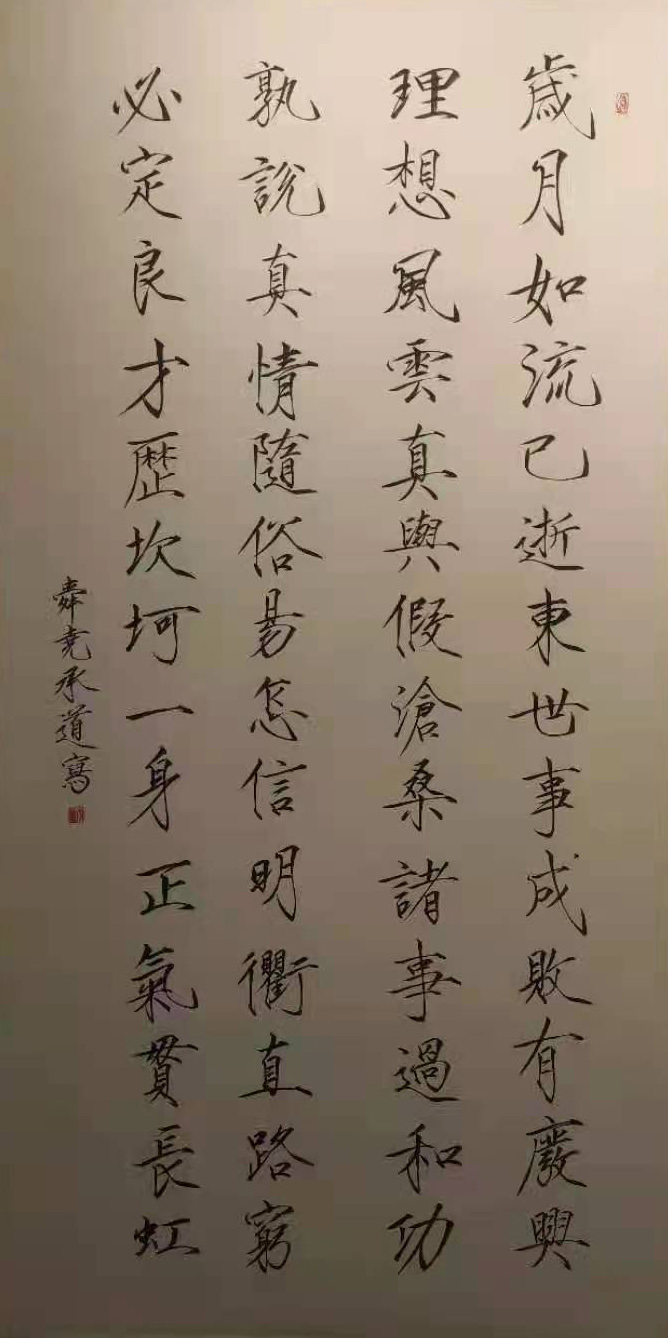 歲月如流已逝東世事成敗有廢興
理想風雲真與假滄桑諸事過和功
孰說真情隨俗易怎信明衢直路窮
必定良才歷坎坷一身正氣貫長虹
舜堯承道寫